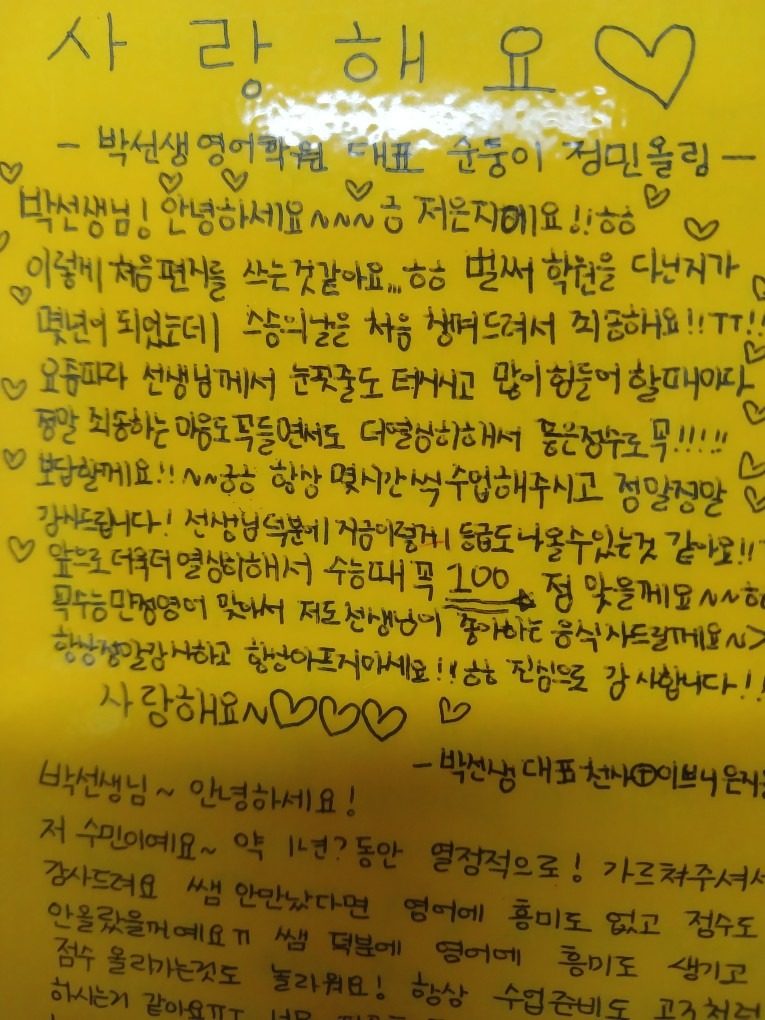 사랑해요♡
- 박선생영어학원 대표 순둥이 정민올림 -
박선생님! 안녕하세요~~~ 금 저은지예요!!ㅎㅎ
이렇게 처음편지를 쓰는것같아요...ㅎㅎ 벌써 학원을 다닌지가
몇년이 되었는데 스승의날을 처음 챙겨드려서 죄송해요!!ㅠㅠ!!
요즘따라 선생님께서 눈핏줄도 터지시고 많이힘들어 할때마다
정말 죄송하는 마음도꼭들면서도 더열심히해서 좋은점수로꼭!!!!!
보답할께요!!~~ㅎㅎ 항상 몇시간씩수업해주시고 정말정말
감사드립니다! 선생님덕분에 지금이렇게 등급도나올수있는것 같아요!!
앞으로더욱더 열심히해서 수능때꼭 100 점 맞을께요~~ㅎ
꼭수능만점영어 맞아서 저도선생님이 좋아하는 음식사드릴께요~>
항상정말감사하고 항상아프지마세요!!ㅎㅎ 진심으로 감사합니다!!
사랑해요~♡♡♡ ♡
- 박선생 대표천사 이쁘니은지
박선생님~ 안녕하세요!
저 수민이예요~ 약 1년?동안 열정적으로! 가르쳐주셔서
감사드려요 쌤 안만났다면 영어에 흥미도 없고 점수도
안올랐을꺼예요ㅠ 쌤 덕분에 영어에 흥미도 생기고
점수 올라가는것도 놀라워요! 항상 수업준비도 고3처럼
하시는거 같아요ㅠㅠ